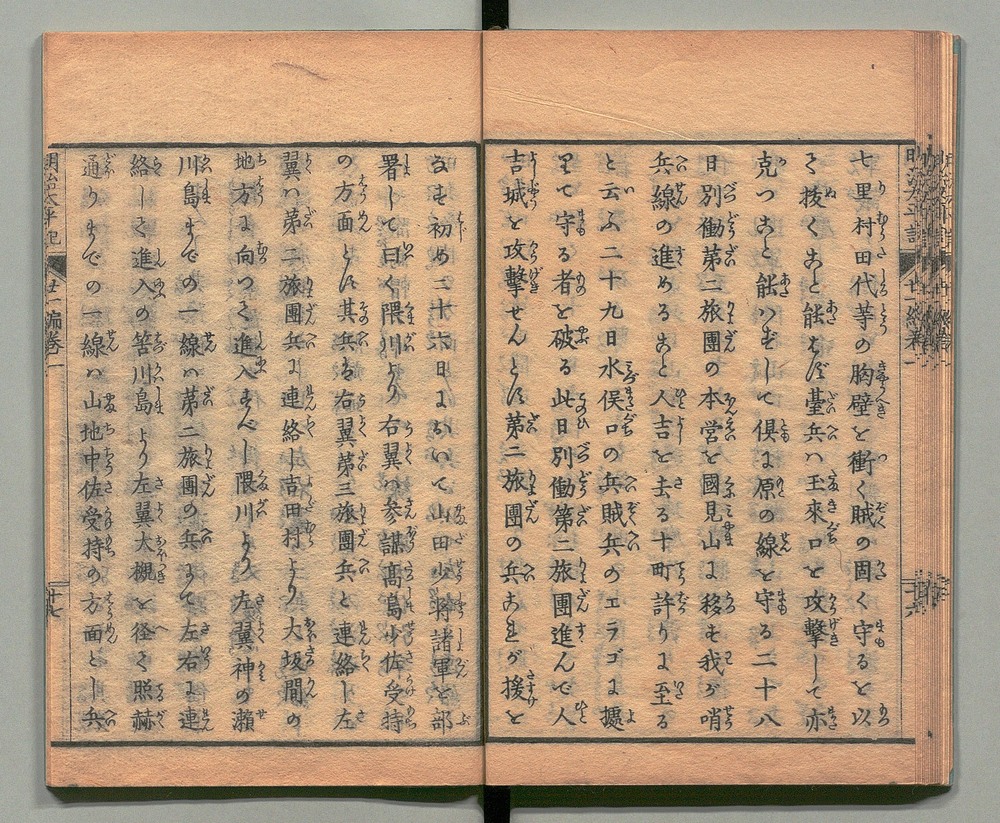 七里村田代等の胸壁を衝く賊の固く守るを以
て抜くこと能はず臺兵ハ王來口を攻擊して亦
克つこと能ハずして俱に原の線を守る二十八
日別働第二旅團の本営を國見山に移す我が哨
兵線の進めること人吉を去る十町許りに至る
と云ふ二十九日水俣口の兵賊兵のエラゴに據
里て守る者を破る此日別働第二旅團進んで人
吉城を攻擊せんとす第二旅團の兵これが援を
なす初め二十六日において山田少将諸軍を部
署して曰く隈川より右翼ハ参謀髙島少佐受持
の方面とす其兵を右翼第三旅團兵と連絡し左
翼ハ第二旅團兵に連絡し吉田村より大坂間の
地方に向つて進入すべし隈川より左翼神の瀬
川島までの一線ハ第二旅團の兵にて左右に連
絡して進入の筈川島より左翼大槻を径て照赫
通りまでの一線ハ山地中佐受持の方面とし兵
明治太平記
廿一編巻一
十七
十六